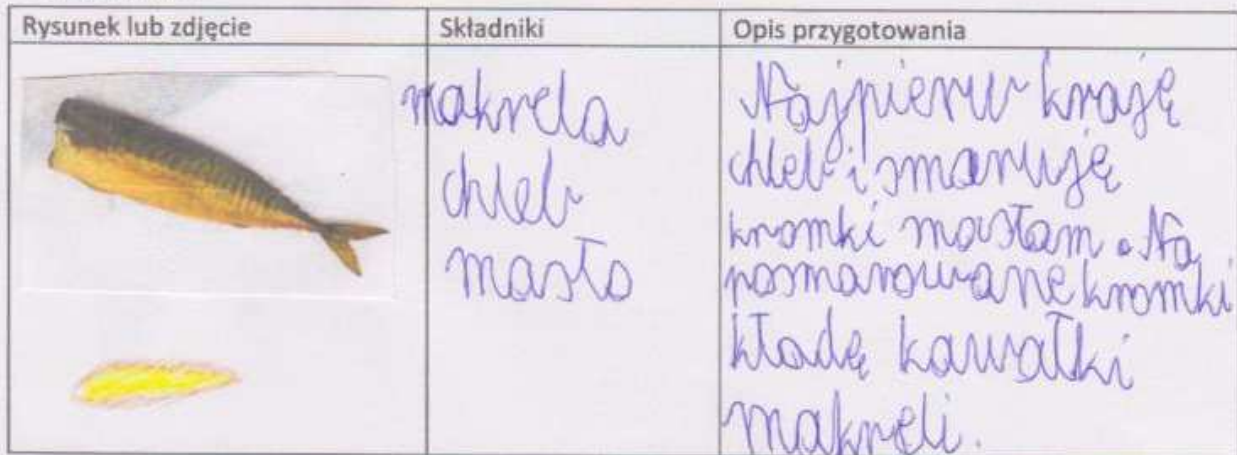 Rysunek lub zdjęcie
Składniki
Opis przygotowania
makrela
chleb
masło
Najpierw kraję
chleb i smaruję
kromki masłam. Na
posmarowane kromki
kładę kawałki
makreli.